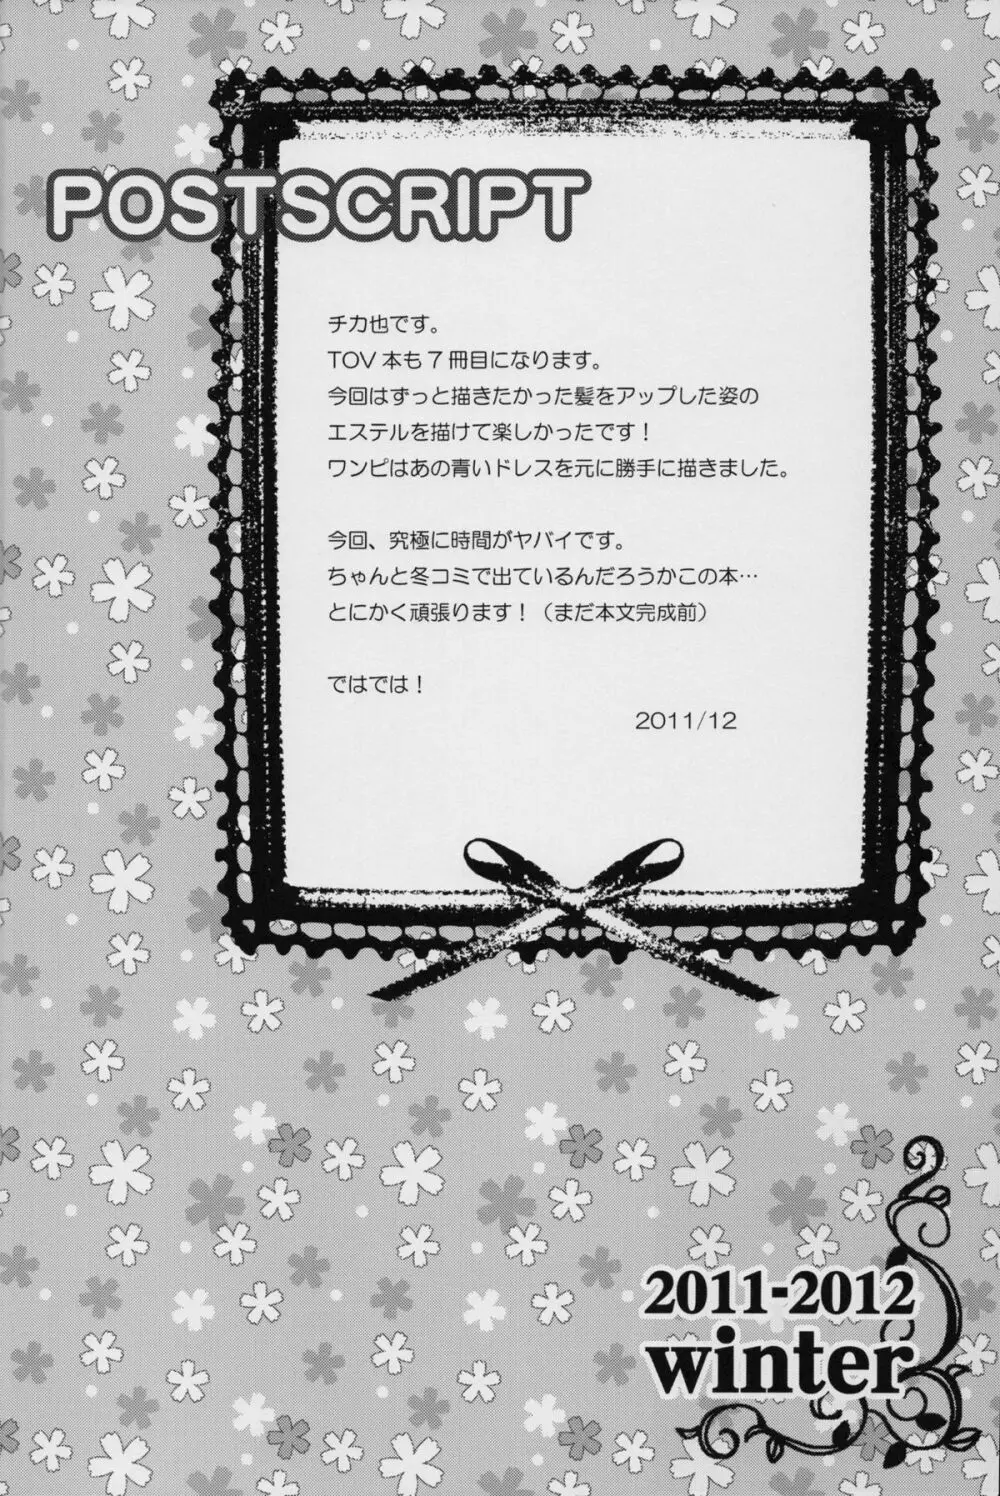 POSTSCRIPT
チカ也です。
TOV本も7冊目になります。
今回はずっと描きたかった髪をアップした姿の
エステルを描けて楽しかったです！
ワンピはあの青いドレスを元に勝手に描きました。
今回、究極に時間がヤバイです。
ちゃんと冬コミで出ているんだろうかこの本…
とにかく頑張ります！（まだ本文完成前）
ではでは！
2011/12
2011-2012
winter